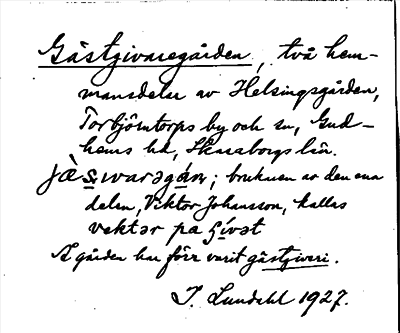 Gästgivaregården, två hem-
mansdelar av Helsingsgården,
Torbjörntorps by och sn, Gud-
hems hd, Skaraborgs län.
brukaren av den ena
delen, Viktor Johansson, kallas
vektər pa
Å gården har förr varit gästgiveri.
I. Lundahl 1927.